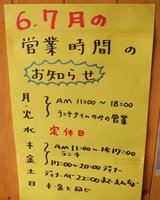 6.7月の
営業時間の
お知らせ
月 AM 11:00～18:00
火 ランチタイムのみの営業
水 定休日
木 AM 11:00～
金 ランチ
土 17:00～20:00 ディナー
日